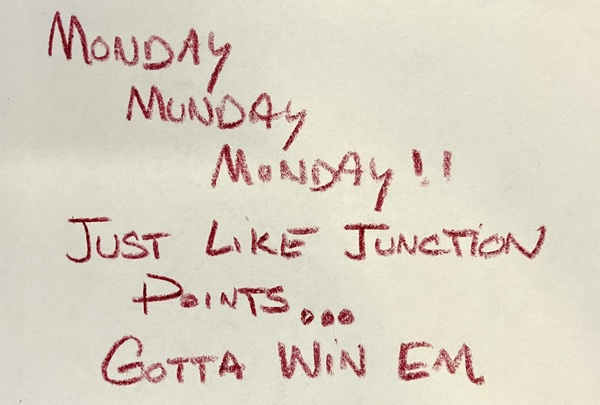 MONDAY
MUNDAY
MONDAY!!
JUST LiKE JUNCTiON
POiNTS...
GOTTA WiN EM